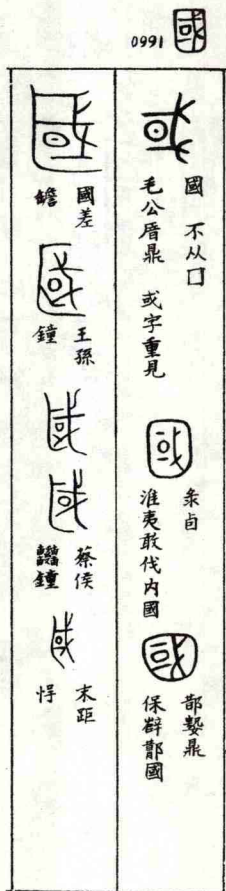 國
0991
國 不从囗
毛公㫗鼎 或字重見
彔卣
淮夷敢伐内國
鼎
保辥國
國差
𦉜
王孫
鐘
蔡侯
鐘
末距
悍